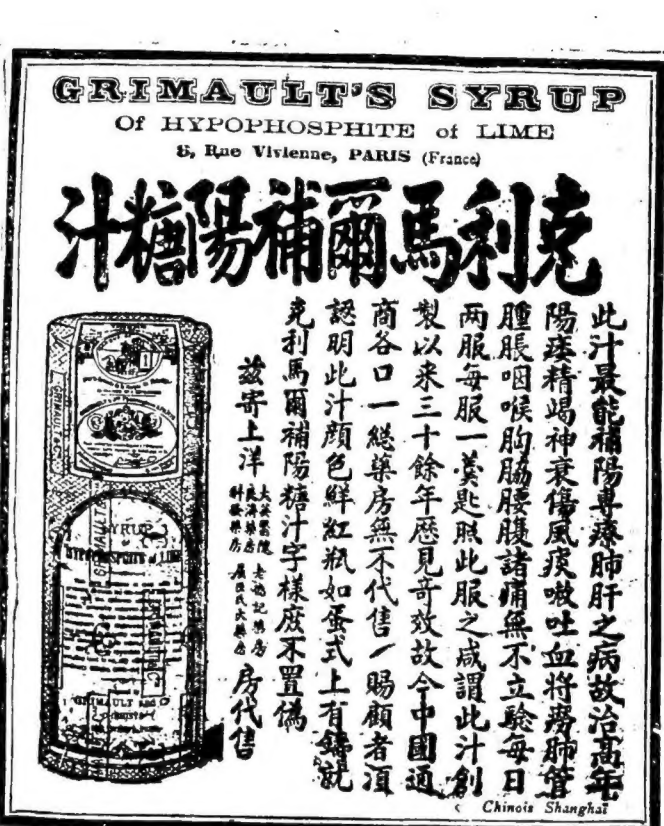 GRIMAULT'S SYRUP
Of HYPOPHOSPHITE of LIME
8, Rue Vivienne, PARIS (France)
克利馬爾補陽糖汁
此汁最能補陽専療肺肝之病故治高年
陽痿精竭神衰傷風痰嗽吐血将癆肺管
腫脹咽喉胸脇腰腹諸痛無不立驗每日
两服每服一羹匙照此服之咸謂此汁創
製以来三十餘年歷見奇效故今中國通
商各口一緫藥房無不代售賜顧者湏
認明此汁顔色鮮紅瓶如蛋式上有鑄就
克利馬爾補陽糖汁字樣庶不置偽
兹寄上洋
大英醫院
科發藥房
老德記藥房
屈臣氏大藥房
房代售
SYRUP
HYPOPHOSPHITE of LIME
GRIMAULT AND Co
Chinois Shanghaï